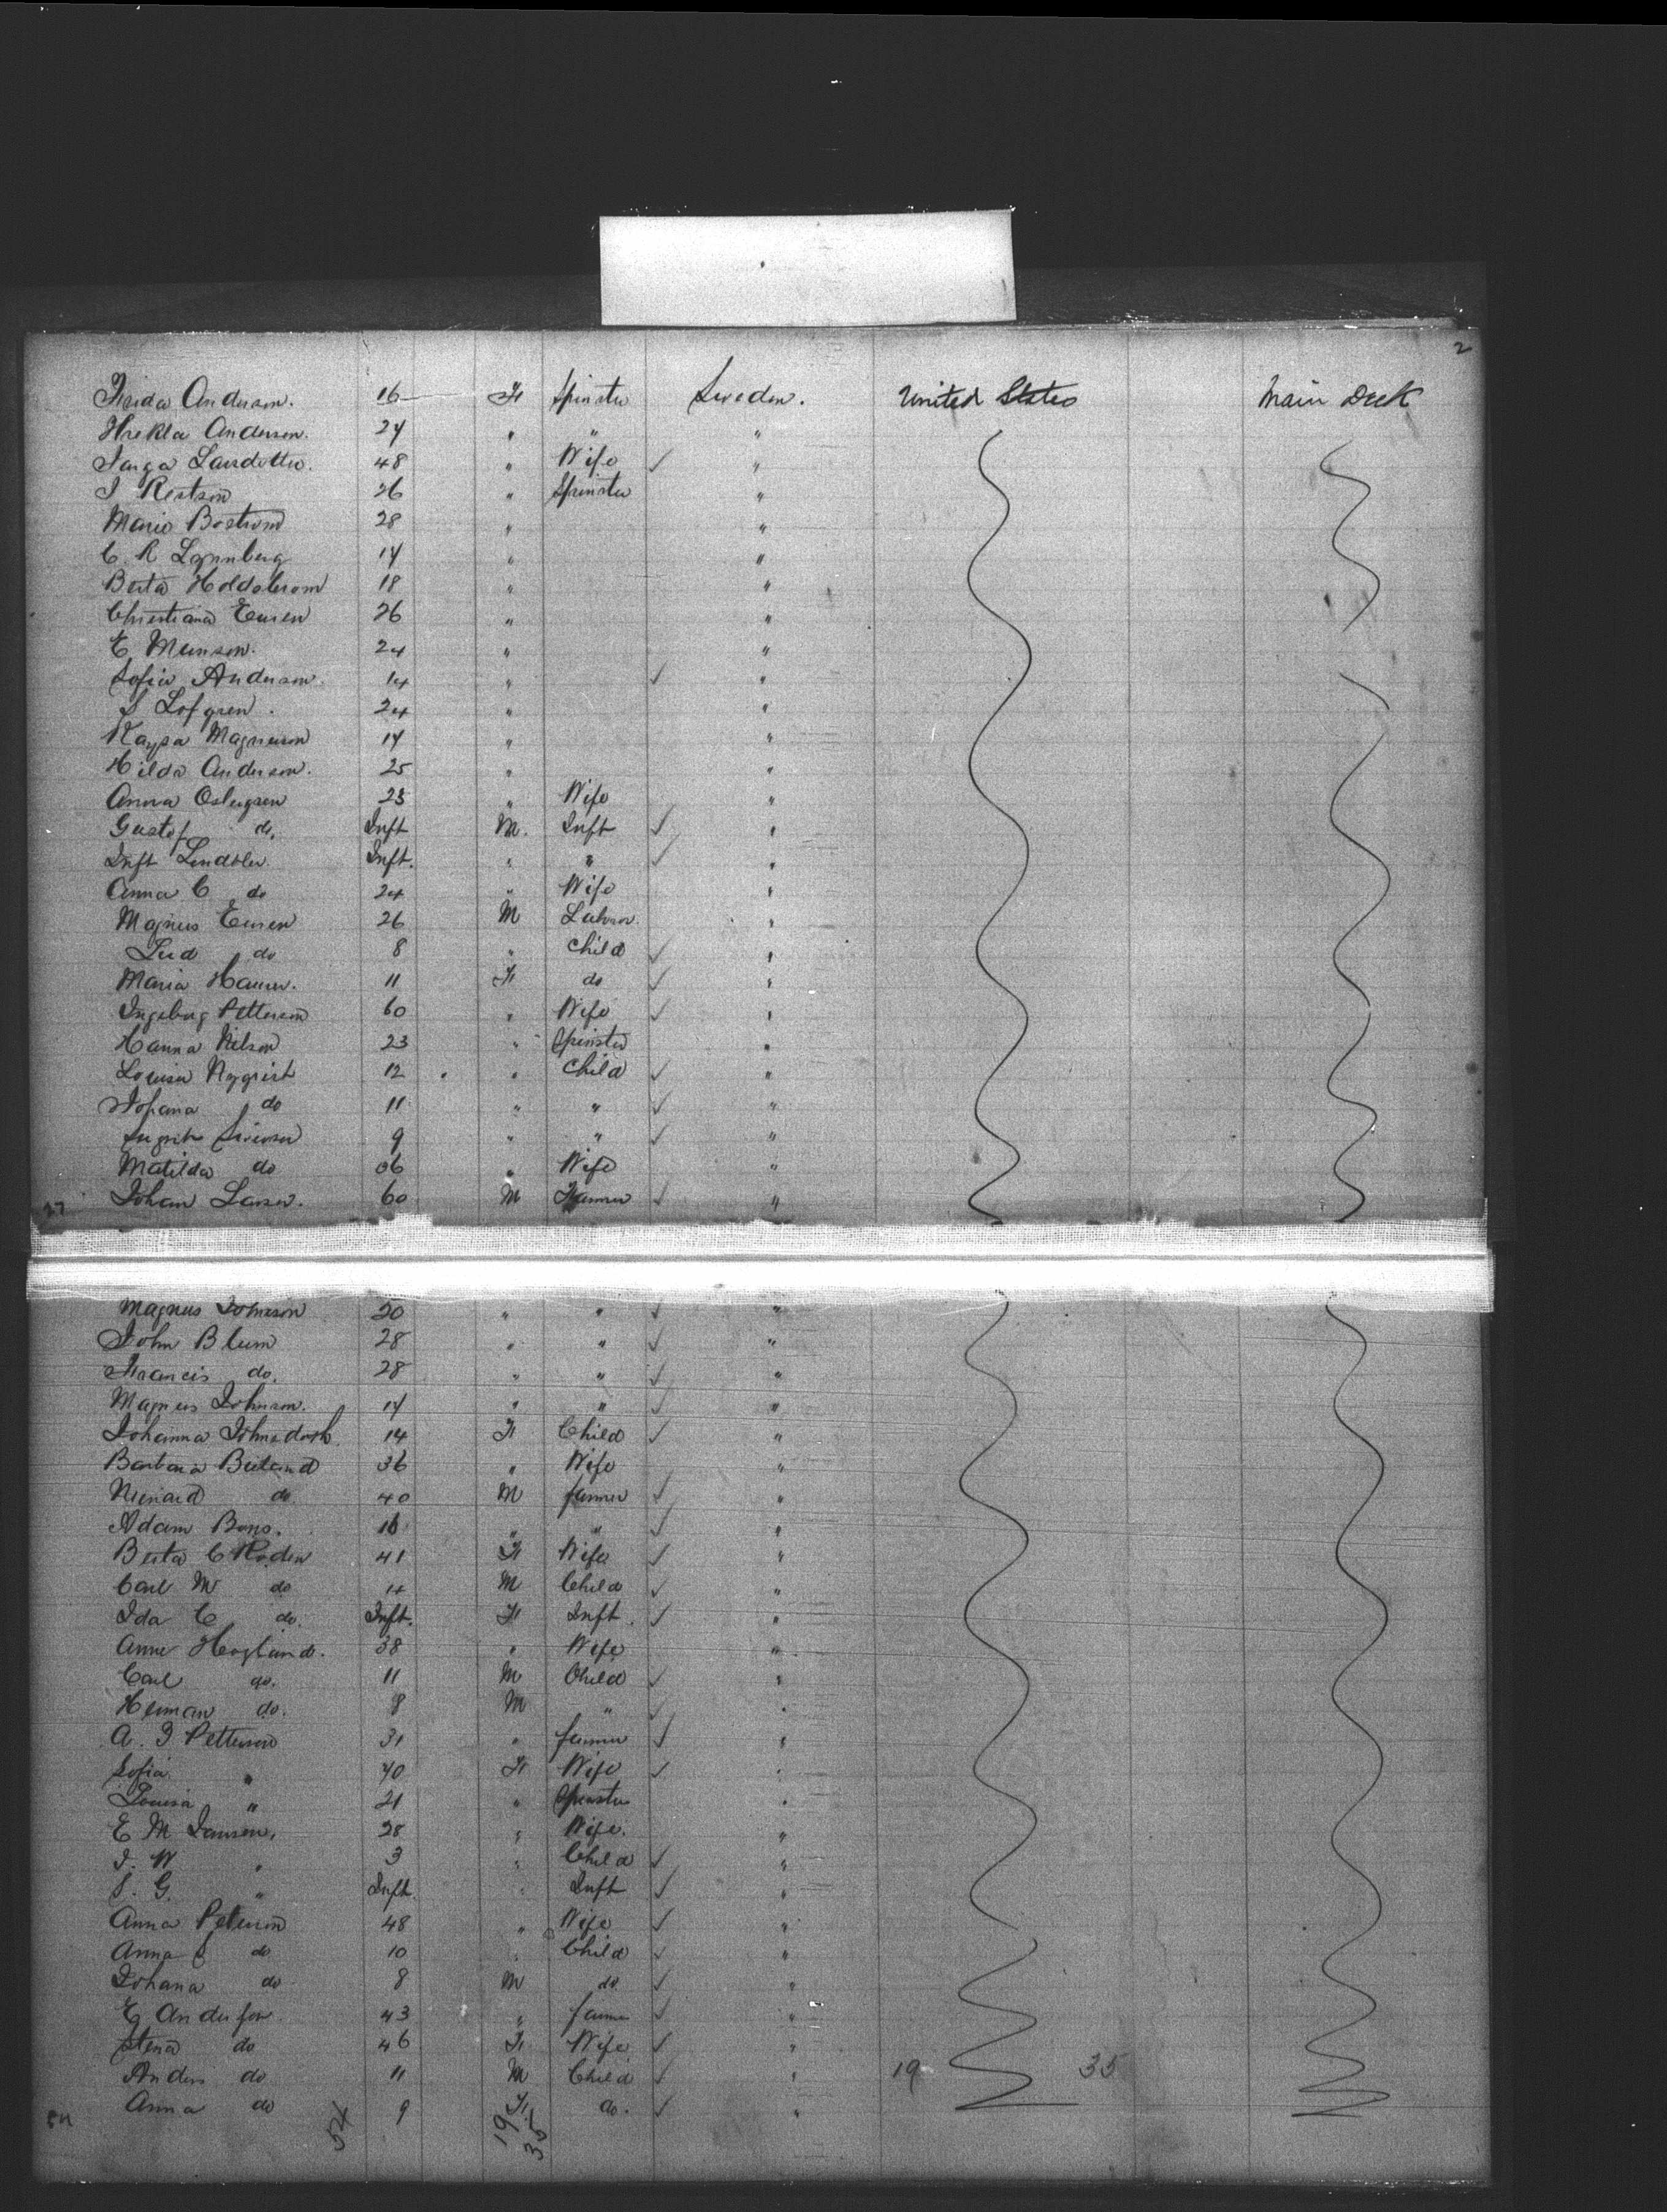 2
Frida Anderson. 16 F Spinster Sweden. United States Main Deck
Hrekla Anderson. 24 " " "
Larsdotter. 48 " Wife ✓ "
J 26 " Spinster "
Maria Bostrom 28 " "
C. R Lonnberg 14 " "
Berta 18 " "
Christiana Eursen 26 " "
E Munson. 24 " "
Sofia Anderson. 14 " ✓ "
S Lofgren. 24 " "
Kaysa Magnuson 14 " "
Hilda Anderson. 25 " "
Anna Ostergren 23 " Wife "
Gustof do. Inft M. Inft ✓ "
Inft Inft. " " ✓ "
Anna C do 24 " Wife "
Magnus Eursen 26 M Labour. "
do 8 " Child ✓ "
Maria 11 F do ✓ "
Ingeborg Petterson 60 " Wife ✓ "
Hanna Nilson 23 " Spinster "
Louisa Nyqrist 12 " Child ✓ "
do 11 " " ✓ "
9 " " ✓ "
Matilda do 36 " Wife "
27 Johan Larsen. 60 M Farmer ✓ "
Magnus Johnson 20 " " ✓ "
John Blum 28 " " ✓ "
Francis do. 28 " " ✓ "
Magnus Johnson. 14 " " ✓ "
Johanna 14 F Child ✓ "
Barbara 36 " Wife "
do. 40 M farmer ✓ "
Adam 16 " " ✓ "
Berta C Roden 41 F Wife ✓ "
Carl M do 14 M Child ✓ "
Ida C do. Inft. F Inft. ✓ "
Anne Hoglund. 38 " Wife "
Carl do. 11 M Child ✓ "
Herman do. 8 M " ✓ "
A. J Petterson 31 " farmer ✓ "
Sofia " 40 F Wife ✓ "
Louisa " 21 " Spinster "
E M Jansen. 28 " Wife. "
J. W " 3 " Child ✓ "
S. G. " Inft. " Inft ✓ "
Anna Peterson 48 " Wife ✓ "
Anna S do 10 " Child ✓ "
Johana do 8 M do. ✓ "
E Anderson. 43 " farmer ✓ "
Stena do 46 F Wife ✓ "
Anders do 11 M Child ✓ " 19 35
54 Anna do 9 F do. ✓ "
54 19 35